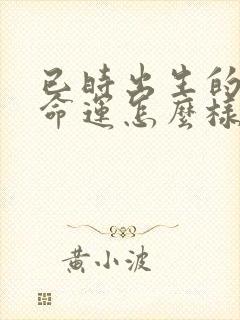 已時出生的
命運怎麼樣
黃小波